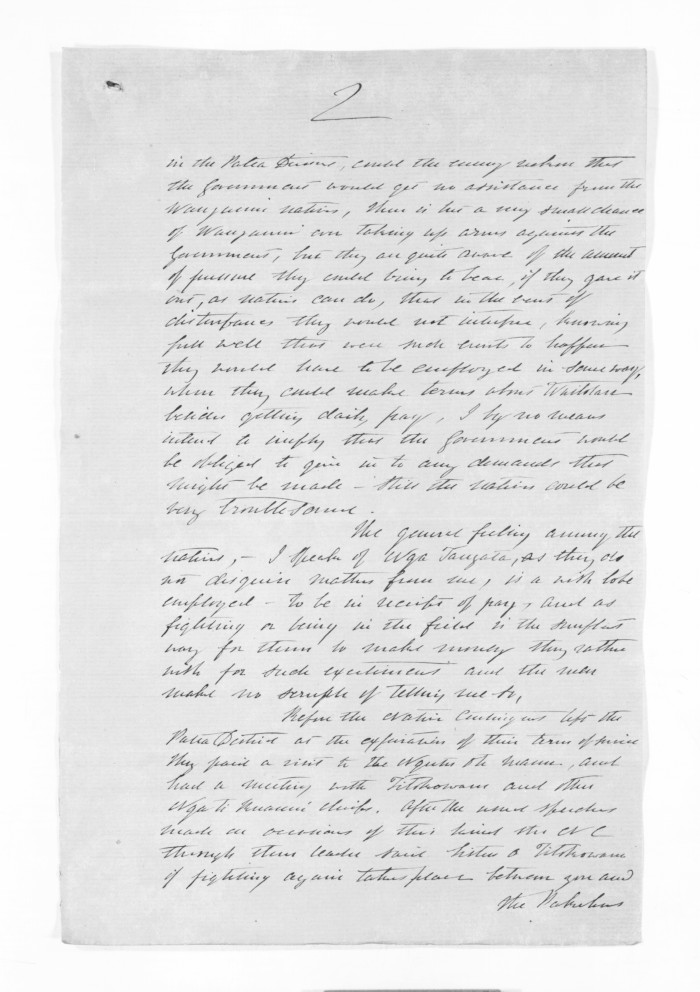 2
in the Patea District, could the enemy reckon that
the Government would get no assistance from the
Wanganui natives, there is but a very small chance
of Wanganui ever taking up arms against the
Government, but they are quite aware of the amount
of pressure they could bring to bear, if they gave it
out, as natives can do, that in the event of
disturbances they would not interfere, knowing
full well that were such events to happen
they would have to be employed in some way,
when they could make terms about Waitotara
besides getting daily pay, I by no means
intend to imply that the Government would
be obliged to give in to any demands that
might be made - still the natives could be
very troublesome.
The general feeling among the
natives, - I speak of Nga Tangata, as they do
not disguise matters from me, is a wish to be
employed - to be in receipt of pay, and as
fighting or being in the field is the simplest
way for them to make money they rather
wish for such excitement and the men
make no scruple of telling me so,
Before the Native Contingent left the
Patea District at the expiration of their term of service
they paid a visit to the and
had a meeting with Titokowaru and other
Nga ti Ruanui chiefs. After the usual speeches
made on occasions of this kind the N C
through their leader said listen O Titokowaru
if fighting again takes place between you and
the Pakehas